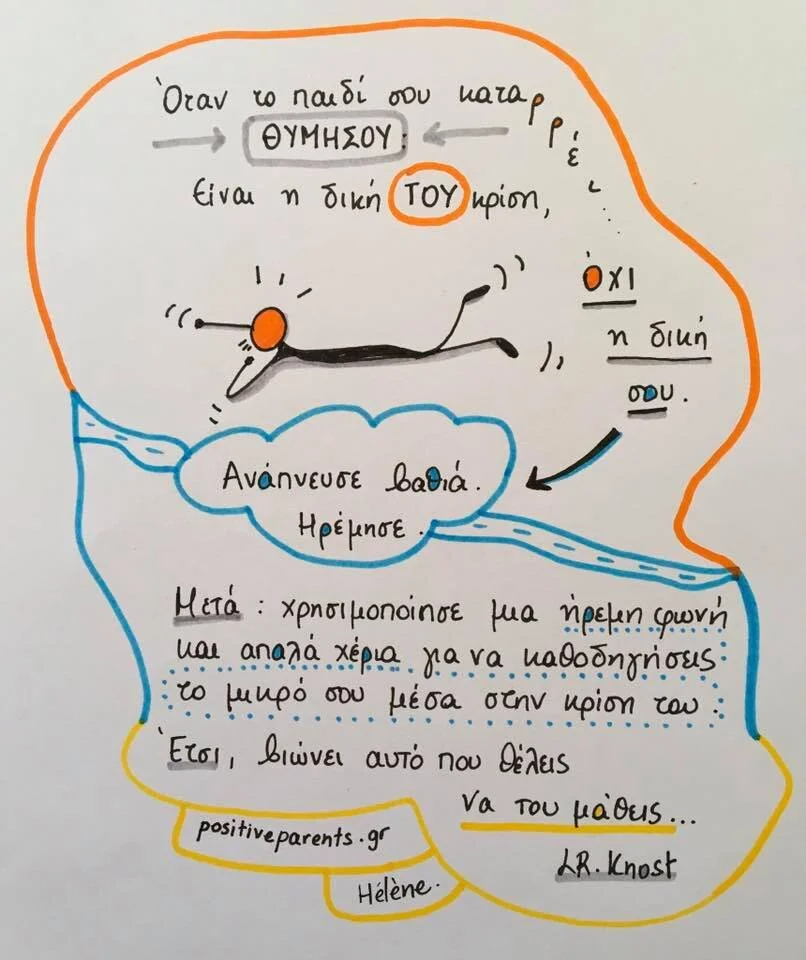 Όταν το παιδί σου καταρρέει...
ΘΥΜΗΣΟΥ:
Είναι η δική ΤΟΥ κρίση,
ΌΧΙ
η δική
σου.
Ανάπνευσε βαθιά.
Ηρέμησε.
Μετά: χρησιμοποίησε μια ήρεμη φωνή
και απαλά χέρια για να καθοδηγήσεις
το μικρό σου μέσα στην κρίση του.
Έτσι, βιώνει αυτό που θέλεις
να του μάθεις...
LR. Knost
positiveparents.gr
Hélène.